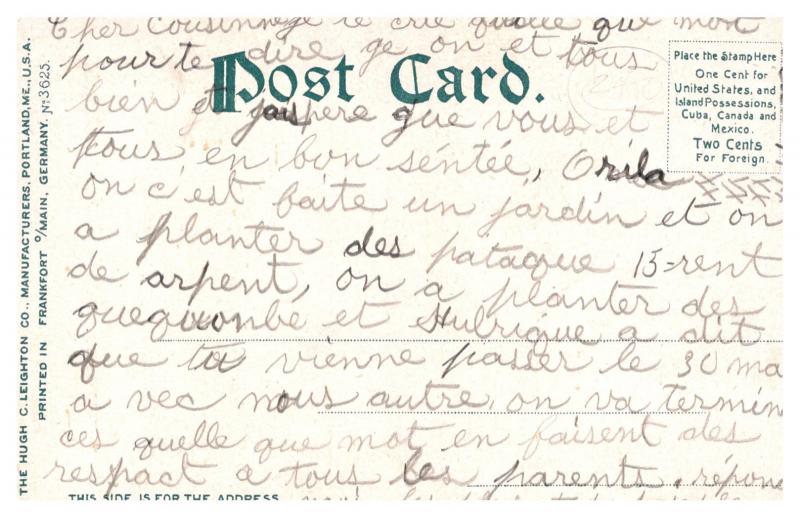 Cher Cousinne je te crie quelle que mot
pour te dire ge on et tous
Post Card.
bien et jaispere que vous et
tous en bon séntée, Orila
on c'est faite un jardin et on
a planter des pataque 15=rent
de arpent, on a planter des
et Hubrigue a dit
que tu vienne passer le 30 ma
a vec nous autre, on va termin
ces quelle que mot en faisent des
respact a tous les parents, répons
Place the Stamp Here
One Cent for
United States, and
Island Possessions,
Cuba, Canada and
Mexico.
Two Cents
For Foreign.
THE HUGH C. LEIGHTON CO., MANUFACTURERS, PORTLAND, ME., U.S.A.
PRINTED IN FRANKFORT o/MAIN, GERMANY. No 3625.
THIS SIDE IS FOR THE ADDRESS